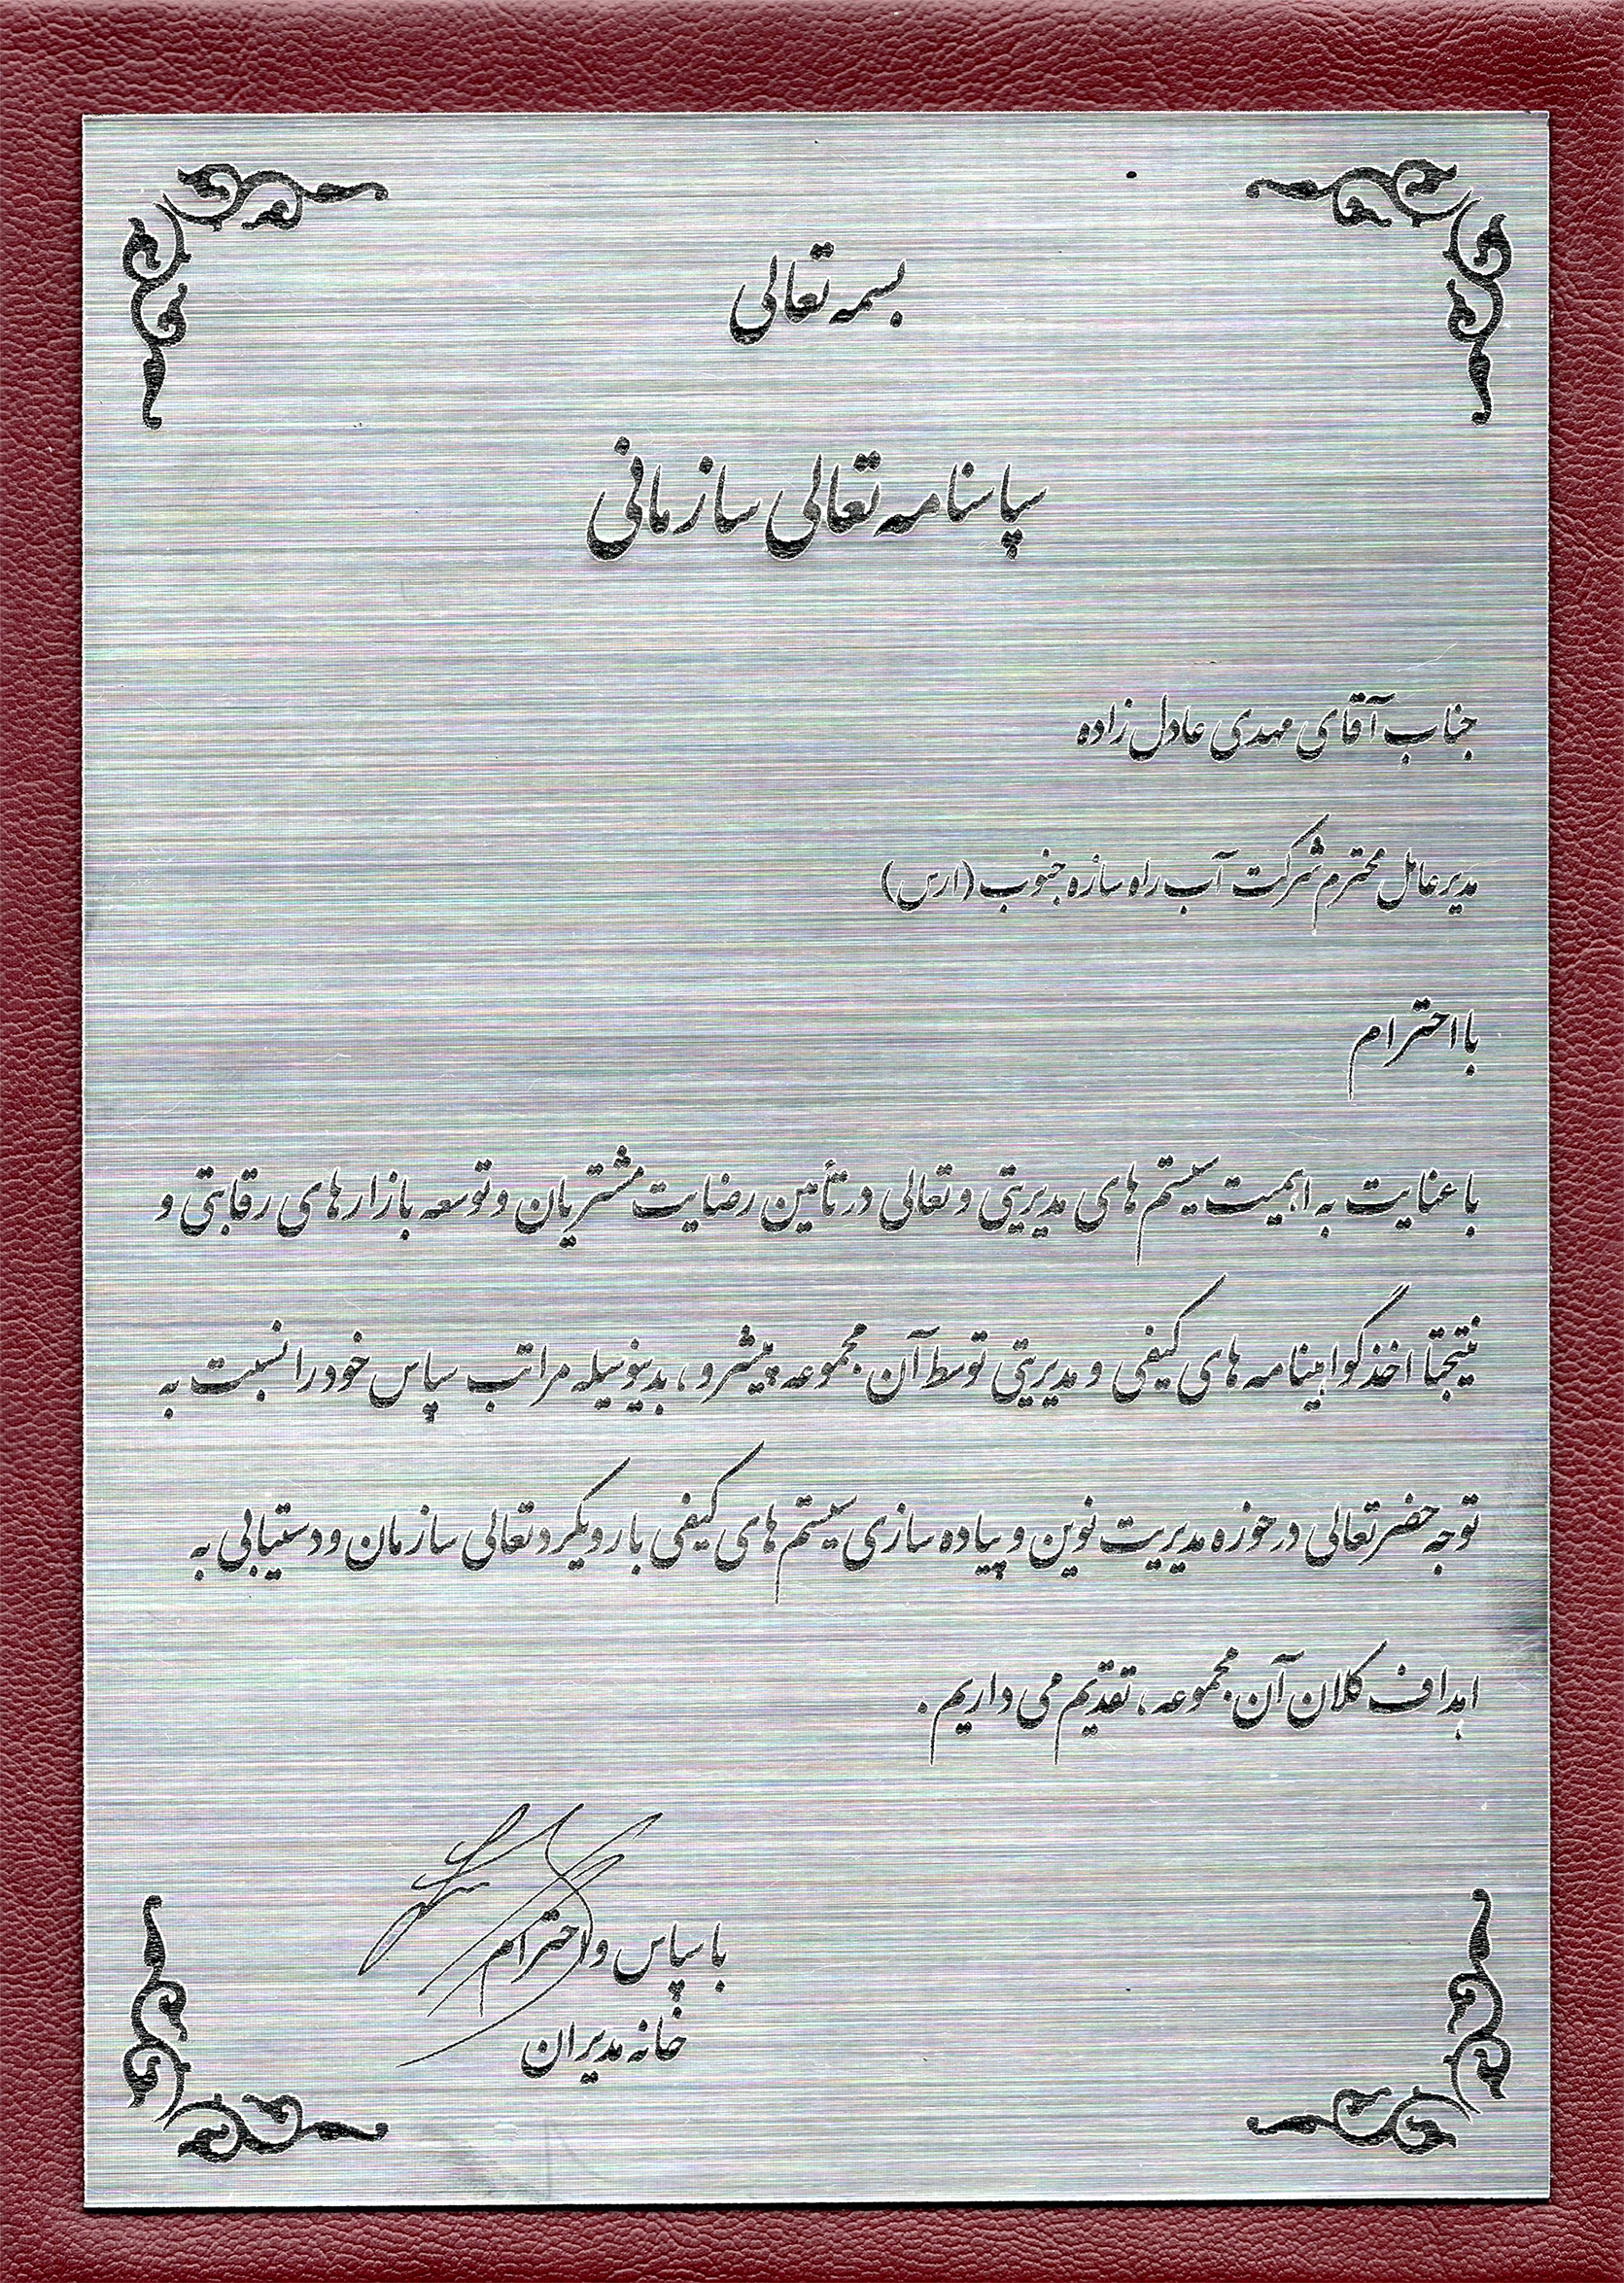 بسمه تعالی
سپاسنامه تعالی سازمانی
جناب آقای مهدی عادل زاده
مدیر عامل محترم شرکت آب راه سازه جنوب (ارس)
با احترام
با عنایت به اهمیت سیستم های مدیریتی و تعالی در تأمین رضایت مشتریان و توسعه بازارهای رقابتی و
نتیجتا اخذ گواهینامه های کیفی و مدیریتی توسط آن مجموعه پیشرو، بدینوسیله مراتب سپاس خود را نسبت به
توجه حضرتعالی در حوزه مدیریت نوین و پیاده سازی سیستم های کیفی با رویکرد تعالی سازمان و دستیابی به
اهداف کلان آن مجموعه، تقدیم می داریم.
با سپاس و احترام
خانه مدیران